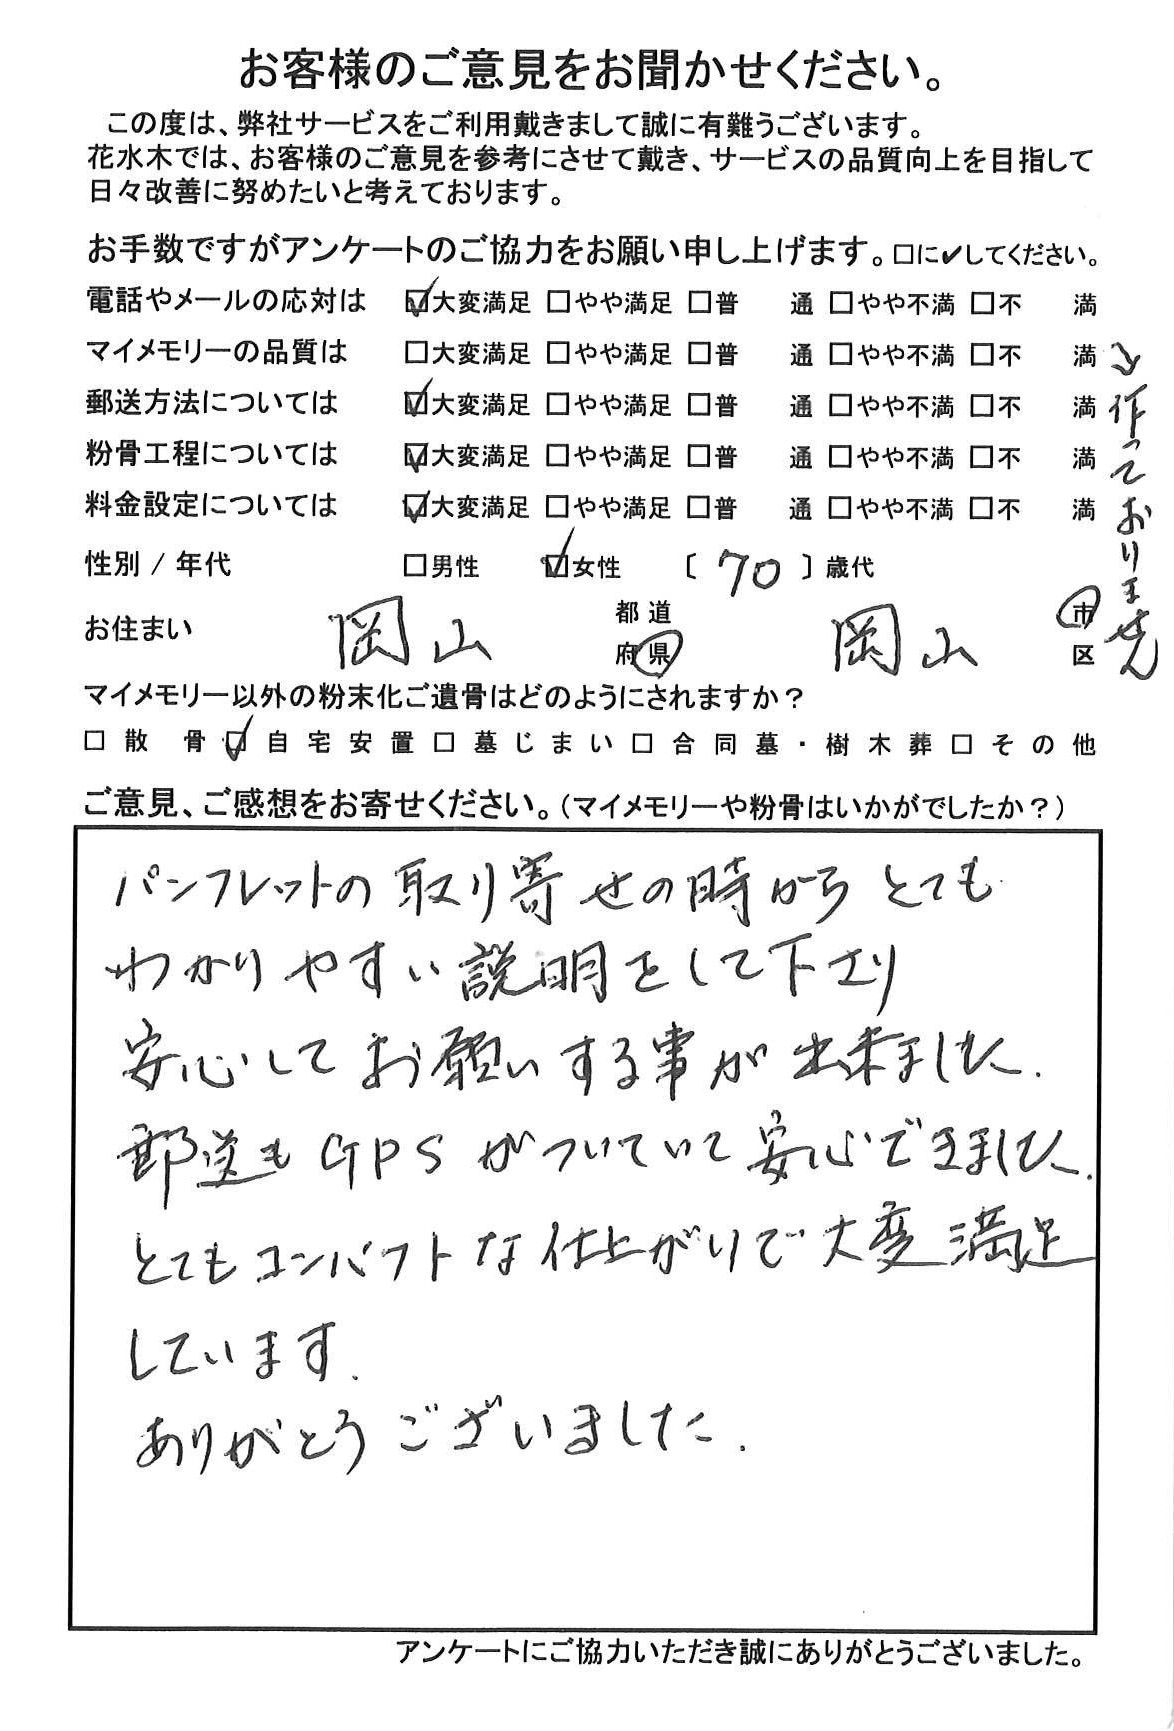 お客様のご意見をお聞かせください。
この度は、弊社サービスをご利用戴きまして誠に有難うございます。
花水木では、お客様のご意見を参考にさせて戴き、サービスの品質向上を目指して
日々改善に努めたいと考えております。
お手数ですがアンケートのご協力をお願い申し上げます。□に✔してください。
電話やメールの応対は ☑大変満足 □やや満足 □普 通 □やや不満 □不 満
マイメモリーの品質は □大変満足 □やや満足 □普 通 □やや不満 □不 満
→作っておりません
郵送方法については ☑大変満足 □やや満足 □普 通 □やや不満 □不 満
粉骨工程については ☑大変満足 □やや満足 □普 通 □やや不満 □不 満
料金設定については ☑大変満足 □やや満足 □普 通 □やや不満 □不 満
性別 / 年代 □男性 ☑女性 〔 70 〕歳代
お住まい 岡山 都道府県 岡山 市区
マイメモリー以外の粉末化ご遺骨はどのようにされますか？
□ 散 骨 ☑ 自宅安置 □ 墓じまい □ 合同墓・樹木葬 □ その他
ご意見、ご感想をお寄せください。（マイメモリーや粉骨はいかがでしたか？）
パンフレットの取り寄せの時からとても
わかりやすい説明をして下さり
安心してお願いする事が出来ました.
郵送もGPSがついていて安心できました.
とてもコンパクトな仕上がりで大変満足
しています.
ありがとうございました.
アンケートにご協力いただき誠にありがとうございました。